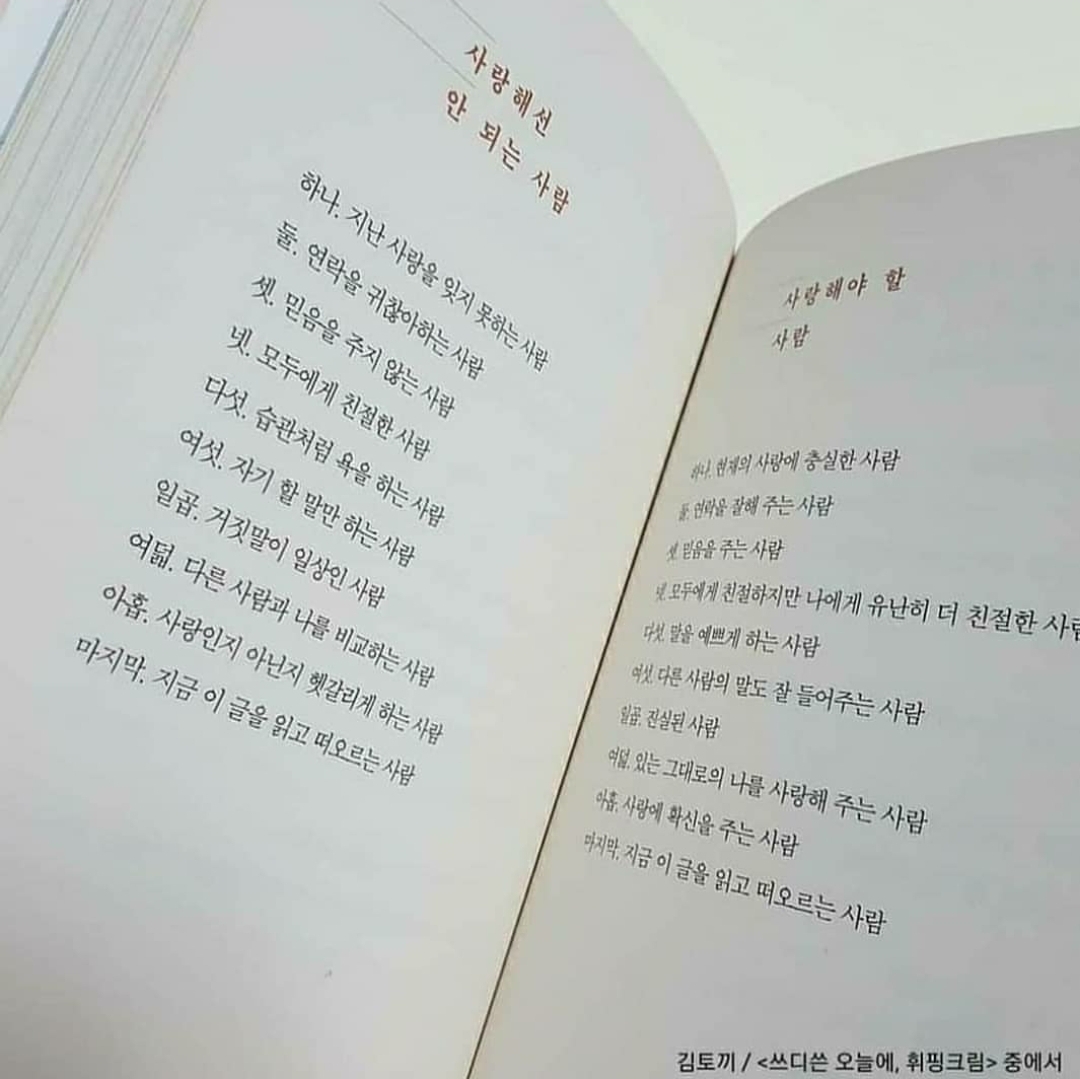 사랑해선
안 되는 사람
하나. 지난 사랑을 잊지 못하는 사람
둘. 연락을 귀찮아하는 사람
셋. 믿음을 주지 않는 사람
넷. 모두에게 친절한 사람
다섯. 습관처럼 욕을 하는 사람
여섯. 자기 할 말만 하는 사람
일곱. 거짓말이 일상인 사람
여덟. 다른 사람과 나를 비교하는 사람
아홉. 사랑인지 아닌지 헷갈리게 하는 사람
마지막. 지금 이 글을 읽고 떠오르는 사람
사랑해야 할
사람
하나. 현재의 사랑에 충실한 사람
둘. 연락을 잘해 주는 사람
셋. 믿음을 주는 사람
넷. 모두에게 친절하지만 나에게 유난히 더 친절한 사람
다섯. 말을 예쁘게 하는 사람
여섯. 다른 사람의 말도 잘 들어주는 사람
일곱. 진실된 사람
여덟. 있는 그대로의 나를 사랑해 주는 사람
아홉. 사랑에 확신을 주는 사람
마지막. 지금 이 글을 읽고 떠오르는 사람
김토끼 / <쓰디쓴 오늘에, 휘핑크림> 중에서